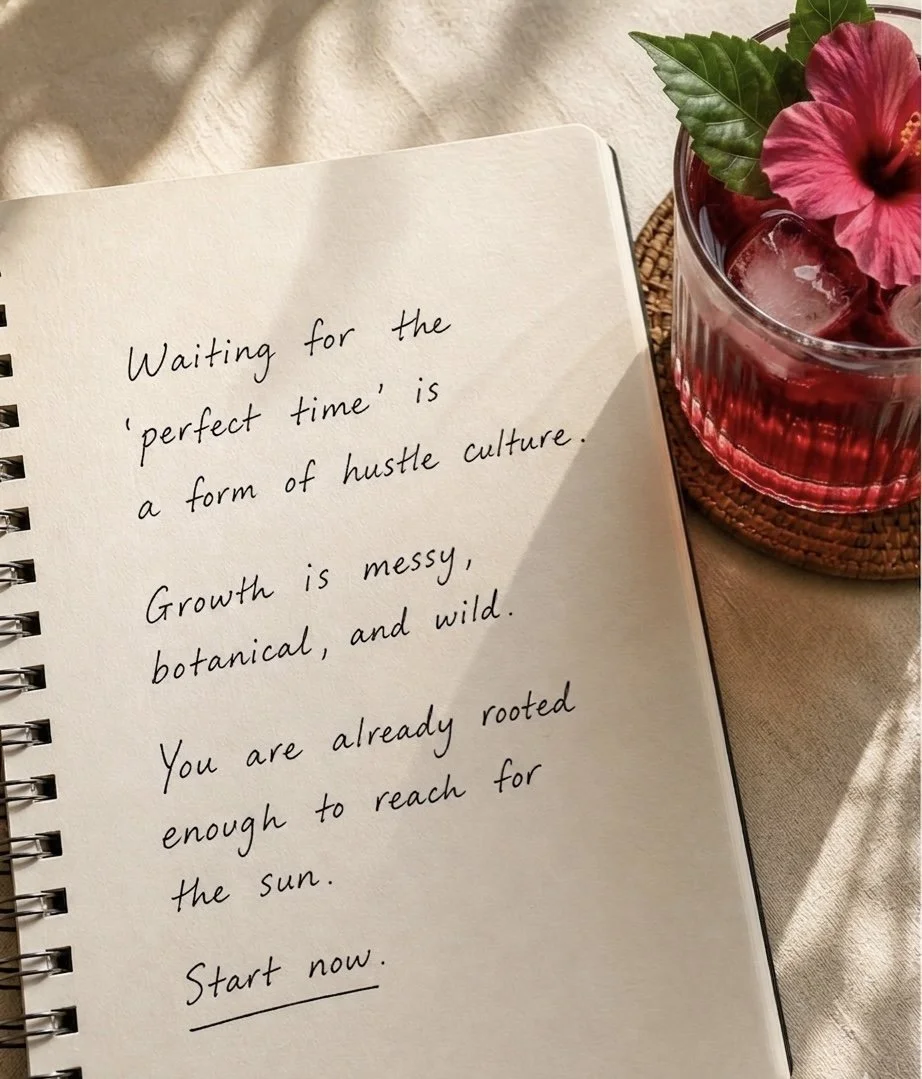 Waiting for the
'perfect time' is
a form of hustle culture.
Growth is messy,
botanical, and wild.
You are already rooted
enough to reach for
the sun.
Start now.